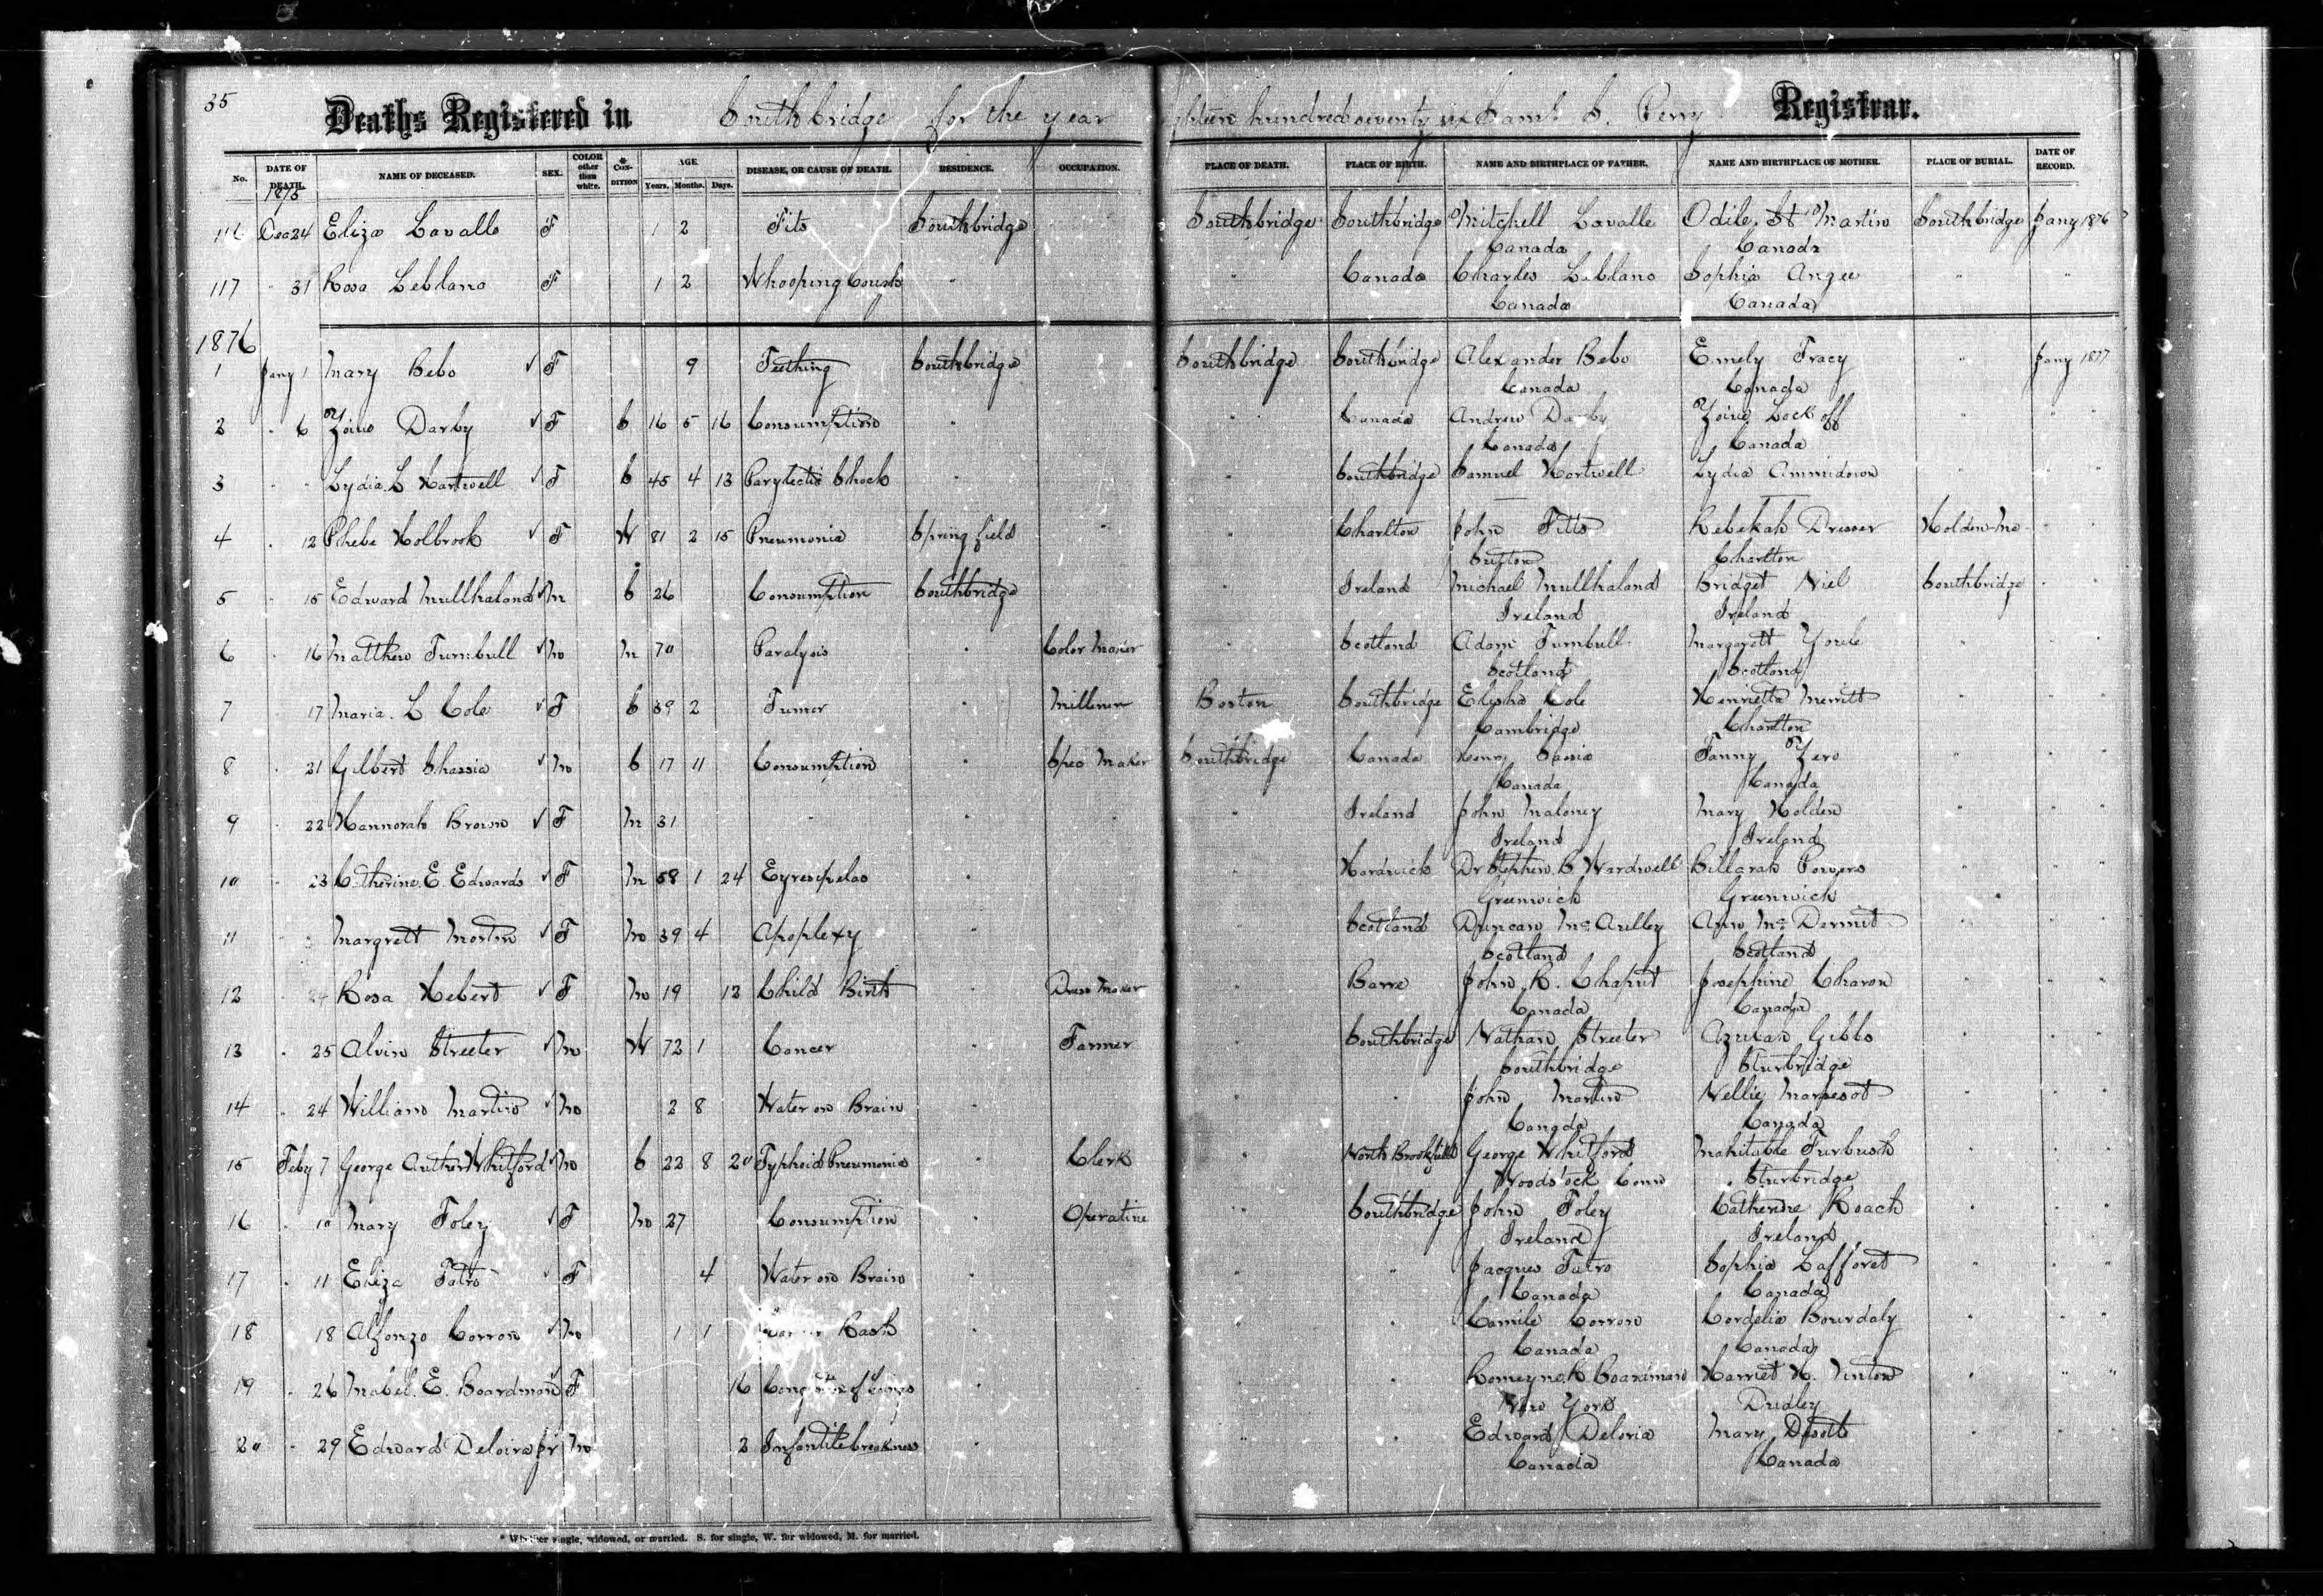 35
Deaths Registered in Southbridge for the year hundred seventy six Saml. S. Perry Registrar.
No. DATE OF DEATH. NAME OF DECEASED. SEX. COLOR other than white. * CONDITION AGE. Years. Months. Days. DISEASE, OR CAUSE OF DEATH. RESIDENCE. OCCUPATION. PLACE OF DEATH. PLACE OF BIRTH. NAME AND BIRTHPLACE OF FATHER. NAME AND BIRTHPLACE OF MOTHER. PLACE OF BURIAL. DATE OF RECORD.
1875
116 Dec 24 Eliza Lavalle F 1 2 Fits Southbridge Southbridge Southbridge Mitchell Lavalle Odile St Martin Southbridge Jany 1876
Canada Canada
117 " 31 Rosa Leblanc F 1 2 Whooping Cough " " Canada Charles Leblanc Sophia Angee " "
Canada Canada
1876
1 Jany 1 Mary Bebo F 9 Teething Southbridge Southbridge Southbridge Alexander Bebo Emely Tracy " Jany 1877
Canada Canada
2 " 6 Zoiue Darby F S 16 5 16 Consumption " " Canada Andrew Darby Zoiue Lock off " "
Canada Canada
3 " " Lydia L Hartwell F S 45 4 13 Parylectic Shock " " Southbridge Samuel Hartwell Lydia Ammidown " "
4 " 12 Phebe Holbrook F W 81 2 15 Pneumonia Springfield " " Charlton John Fitts Rebekah Dresser Holden Me "
Sutton Charlton
5 " 15 Edward Mullhaland M S 26 Consumption Southbridge " Ireland Michael Mullhaland Bridget Niel Southbridge "
Ireland Ireland
6 " 16 Matthew Turnbull M M 70 Paralysis " Color Maker " Scotland Adam Turnbull Margarett Youle " "
Scotland Scotland
7 " 17 Maria. L Cole F S 39 2 Tumor " Milliner Boston Southbridge Elisha Cole Henrietta Merritt " "
Cambridge Charlton
8 " 21 Gilbert Shassia M S 17 11 Consumption " Spec Maker Southbridge Canada Henry Sassia Fanny Zero " "
Canada Canada
9 " 22 Hannorah Brown F M 31 " " " " Ireland John Maloney Mary Holden " "
Ireland Ireland
10 " 23 Catherine. E. Edwards F M 58 1 24 Eyresipelas " " Hardwick Dr Stephen. B Wardwell Billarah Powers " "
Greenwich Greenwich
11 " " Margrett Morton F M 39 4 Apoplexy " " Scotland Duncan Mc Aulley Ann Mc Dermit " "
Scotland Scotland
12 " 24 Rosa Hebert F M 19 12 Child Birth " Dress Maker " Barre John. R. Chaput Josephine Charon " "
Canada Canada
13 " 25 Alvin Streeter M W 72 1 Cancer " Farmer " Southbridge Nathan Streeter Azubah Gibbs " "
Southbridge Sturbridge
14 " 24 William Martin M 2 8 Water on Brain " " " John Martin Nellie " "
Canada Canada
15 Feby 7 George Auther Whitford M S 22 8 20 Typhoid Pneumonia Clerk " North Brookfield George Whitford Mahitable Furbush " "
Woodstock Conn Sturbridge
16 " 10 Mary Foley F M 27 Consumption " Operative " Southbridge John Foley Catherine Roach " "
Ireland Ireland
17 " 11 Eliza Fatro F 4 Water on Brain " " " Jacques Fatro Sophia Lafforet " "
Canada Canada
18 " 18 Alfonzo Corron M 1 1 Rash " " " Camile Corron Cordelia Bourdaly " "
Canada Canada
19 " 26 Mabel. E. Boardman F 16 Congtion of Lungs " " " Romeyne. R. Boardman Harriet H. Vinton " "
New York Dudley
20 " 29 Edward Deloira Jr M 2 Infantile weakness " " " Edward Deloria Mary Dosott " "
Canada Canada
* Whether single, widowed, or married. S. for single, W. for widowed, M. for married.